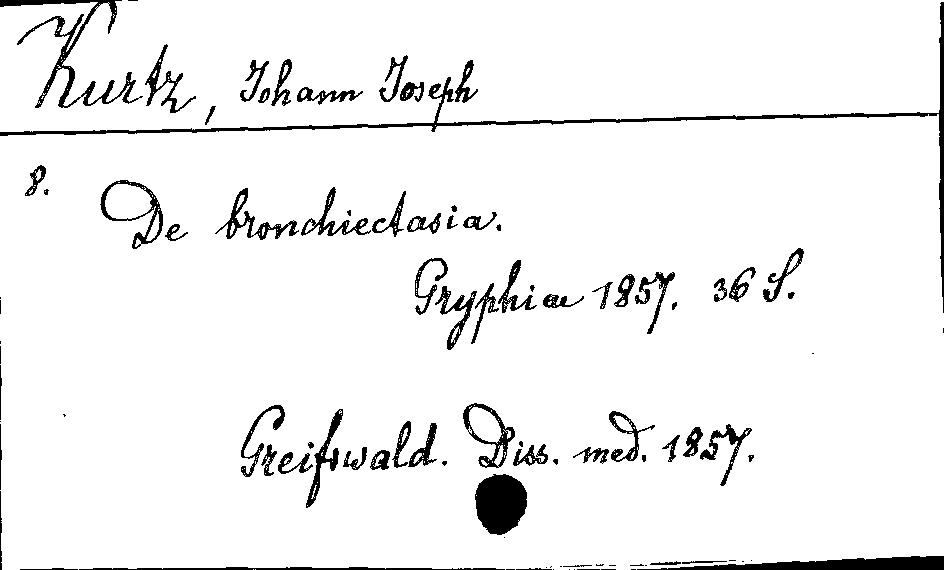 Kurtz, Johann Joseph
8.
De bronchiectasia.
Gryphiae 1857. 36 S.
Greifswald. Diss. med. 1857.